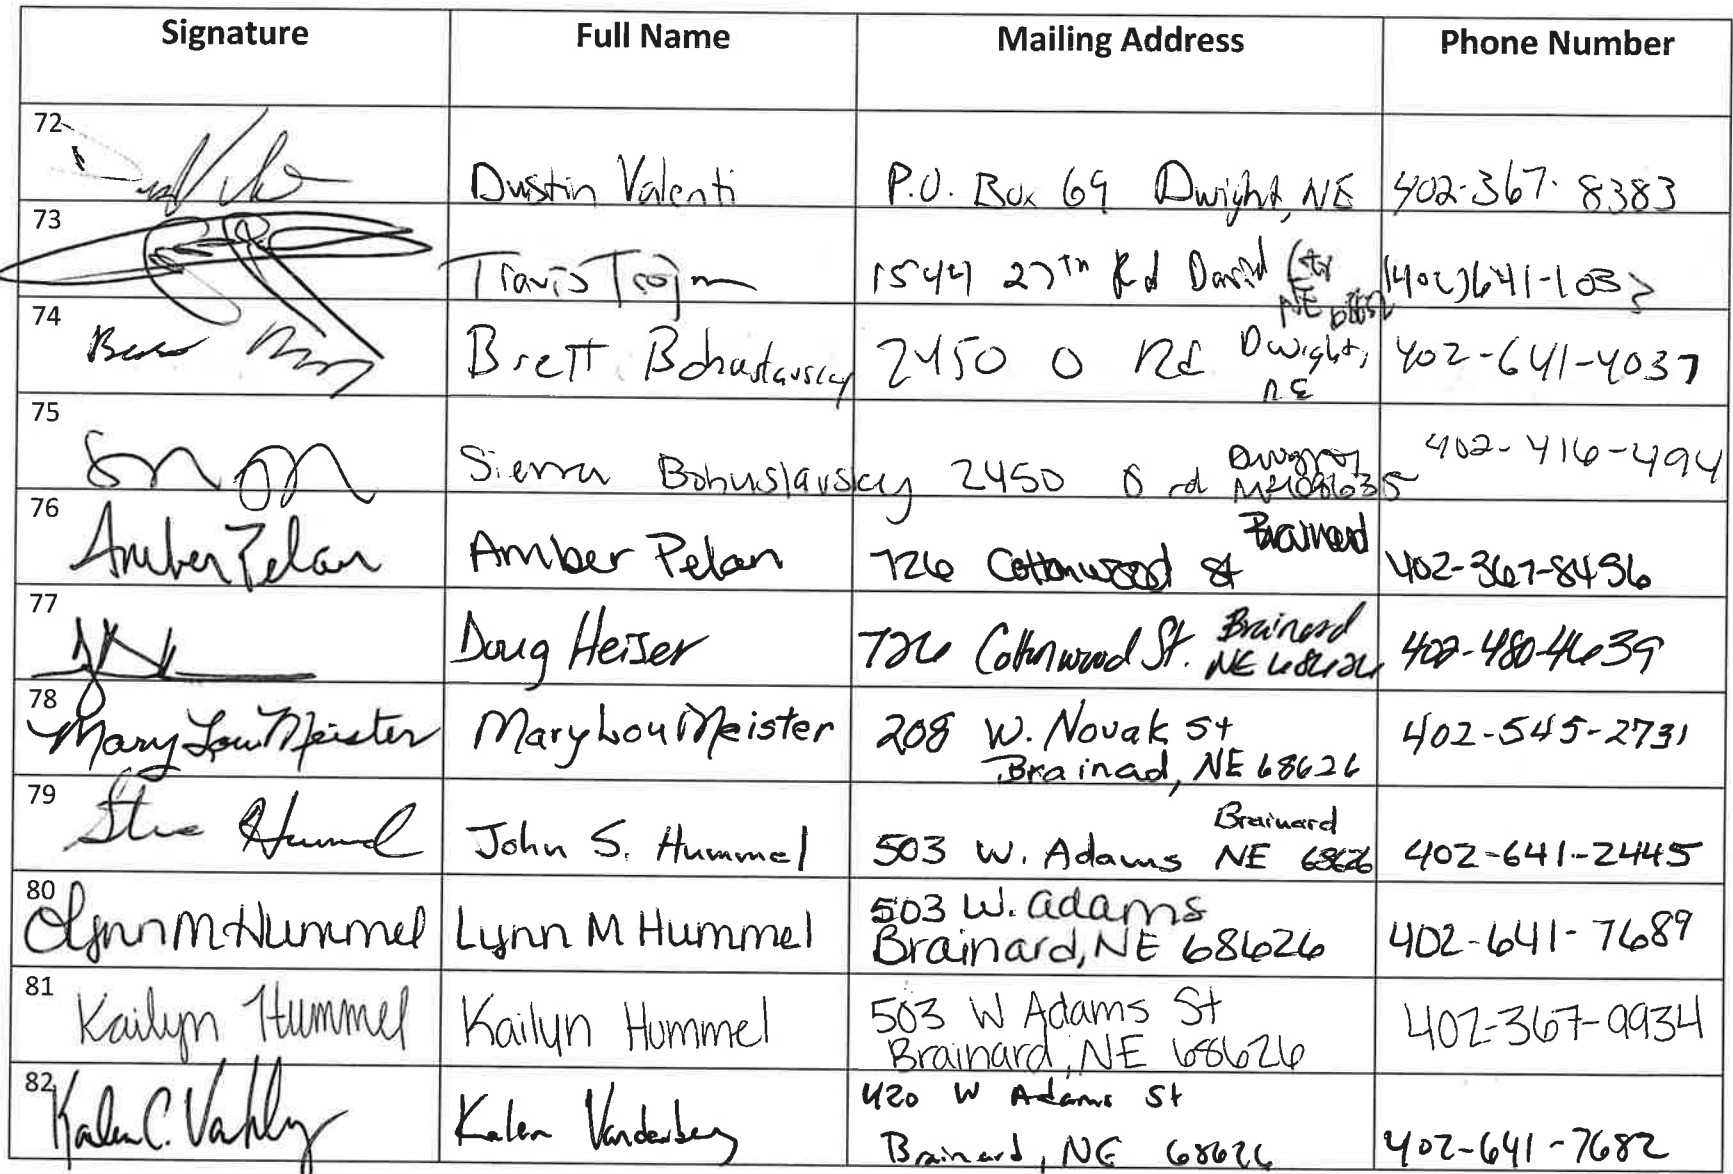 Signature Full Name Mailing Address Phone Number
72 Dustin Valenti P.O. Box 69 Dwight, NE 402-367-8383
73 Travis 1544 27th Rd David City
NE (402)641-103
74 Brett 2450 O Rd Dwight, 402-641-4037
N.E
75 Sierra Bohuslavsky 2450 O rd 402-416-494
76 Amber Pelan Amber Pelan 726 Cottonwood St Brainerd 402-367-8456
77 Doug Heiser 726 Cottonwood St. Brainerd 402-480-4639
NE 68626
78 Mary Lou Meister Mary Lou Meister 208 W. Novak St 402-545-2731
Brainad, NE 68626
79 Steve Hummel John S. Hummel 503 W. Adams Brainard
NE 68626 402-641-2445
80 Lynn M Hummel Lynn M Hummel 503 W. Adams
Brainard, NE 68626 402-641-7689
81 Kailyn Hummel Kailyn Hummel 503 W Adams St 402-367-9934
Brainard, NE 68626
82 Kalen Vanderberg 420 W Adams St
Brainard, NE 68626 402-641-7682